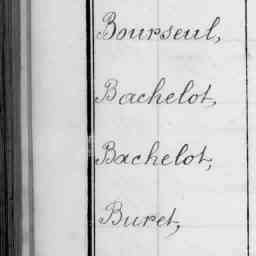 Bourseul,
Bachelot,
Bachelot,
Buret,